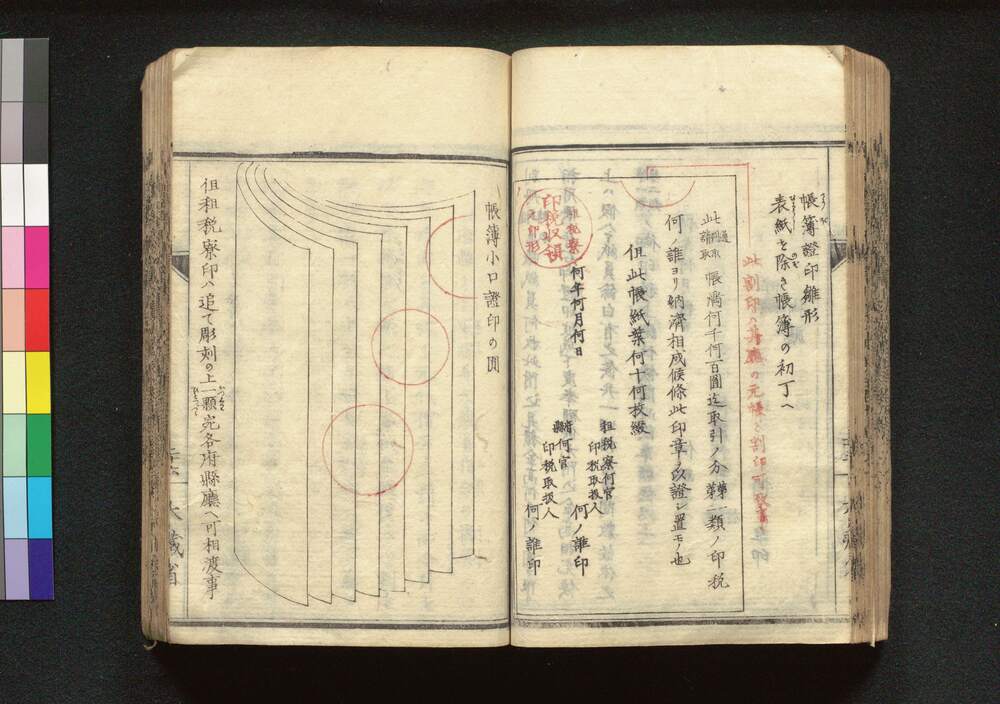 帳簿證印雛形
表紙を除き帳簿の初丁へ
此割印ハ
元帳と割印可致事
此 通 請取 帳満何千何百圓迄取引ノ分 第一 第二 類ノ印税
何ノ誰ヨリ納済相成候條此印章ヲ以證シ置モノ也
但此帳紙葉何十何枚綴
租税寮
印税収領
之印形
何年何月何日
租税寮何官
印税取扱人
何ノ誰印
何官
印税取扱人
何ノ誰印
帳簿小口證印の圖
但租税寮印ハ追て彫刻の上一顆宛各府縣廳へ可相渡事
大藏省